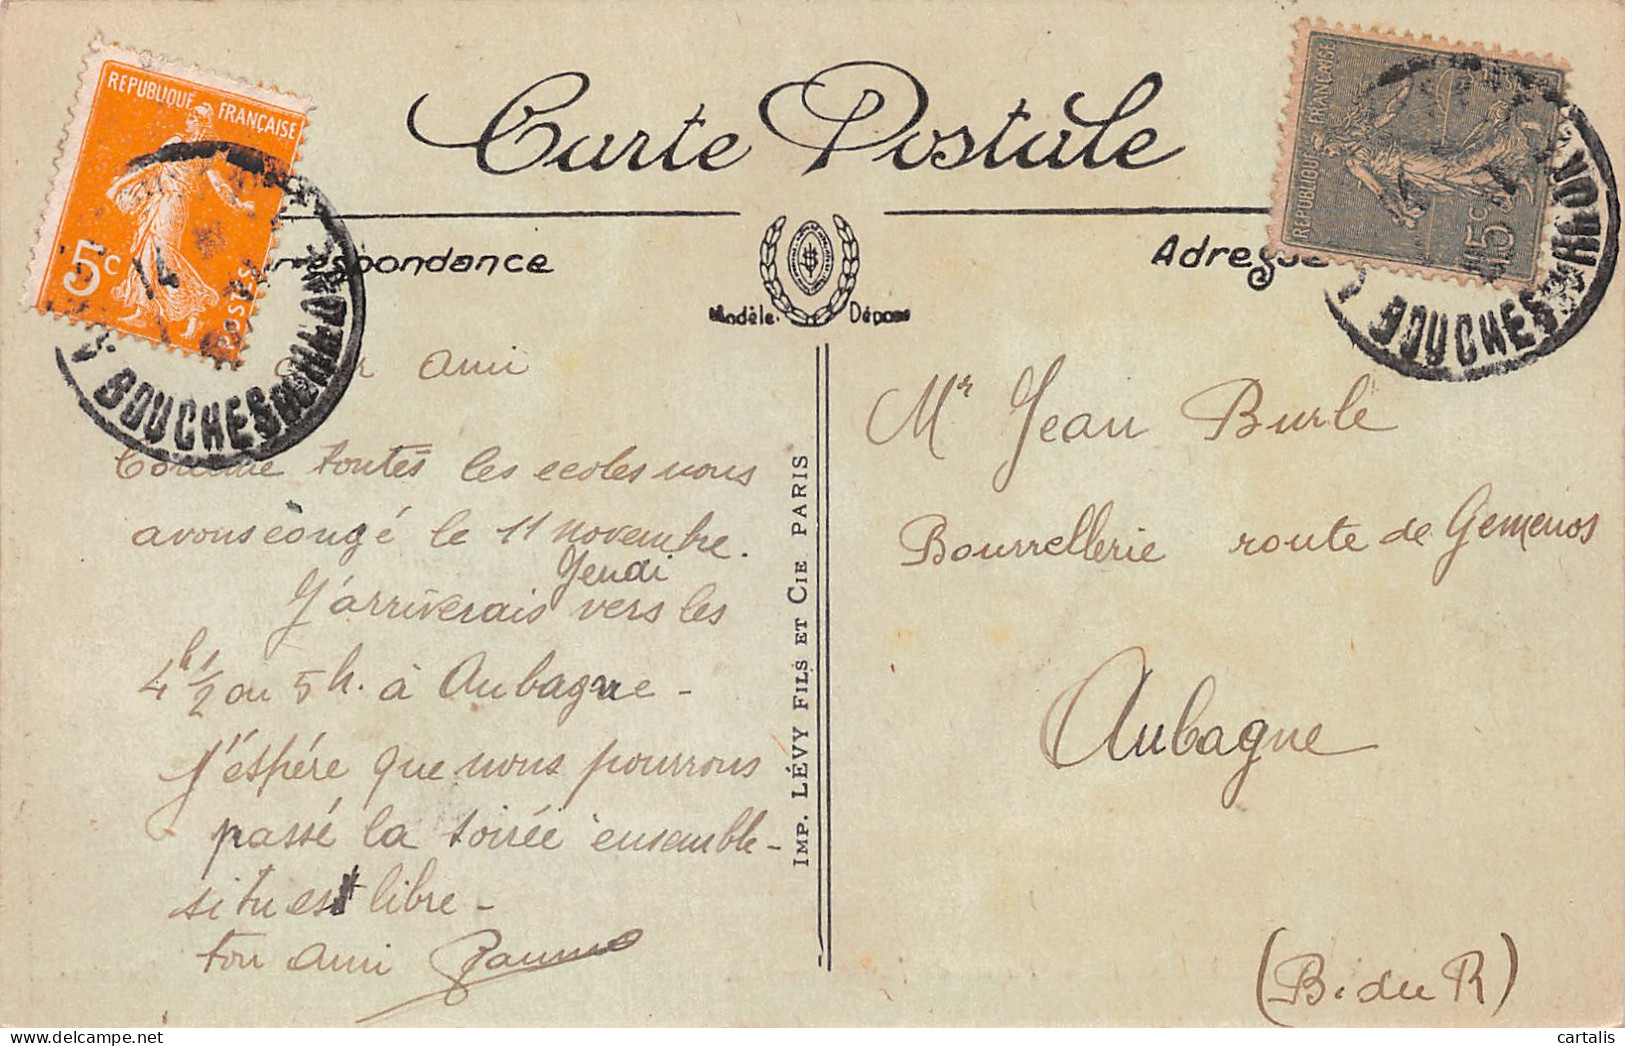 Carte Postale
REPUBLIQUE FRANÇAISE
5c
POSTES
REPUBLIQUE FRANÇAISE
15c
14
BOUCHES DU RHONE
BOUCHES DU RHONE
respondance
Adresse
Modèle Déposé
ami
Comme toutes les ecoles nous
avons congé le 11 novembre.
Jeudi
J'arriverais vers les
4h 1/2 ou 5h. à Aubagne -
J'éspére que nous pourrons
passé la soirée ensemble -
si tu es libre -
ton ami
IMP. LÉVY FILS ET CIE PARIS
Mr Jean Burle
Bourrellerie route de Gemenos
Aubagne
(B. du R)
cartalis